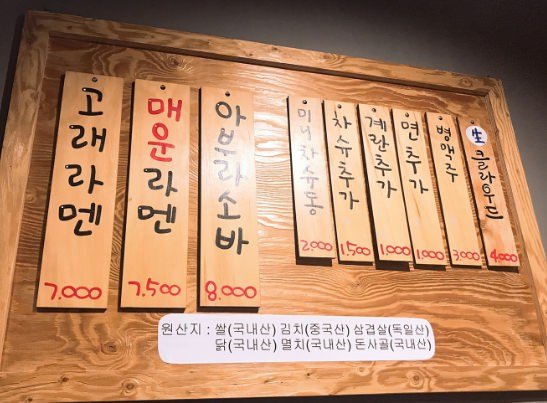 고래라멘
7.000
매운라멘
7.500
아부라소바
8.000
미니차슈동
2000
차슈추가
1.500
계란추가
1.000
면추가
1.000
병맥주
3.000
生 클라우드
4.000
원산지 : 쌀(국내산) 김치(중국산) 삼겹살(독일산)
닭(국내산) 멸치(국내산) 돈사골(국내산)